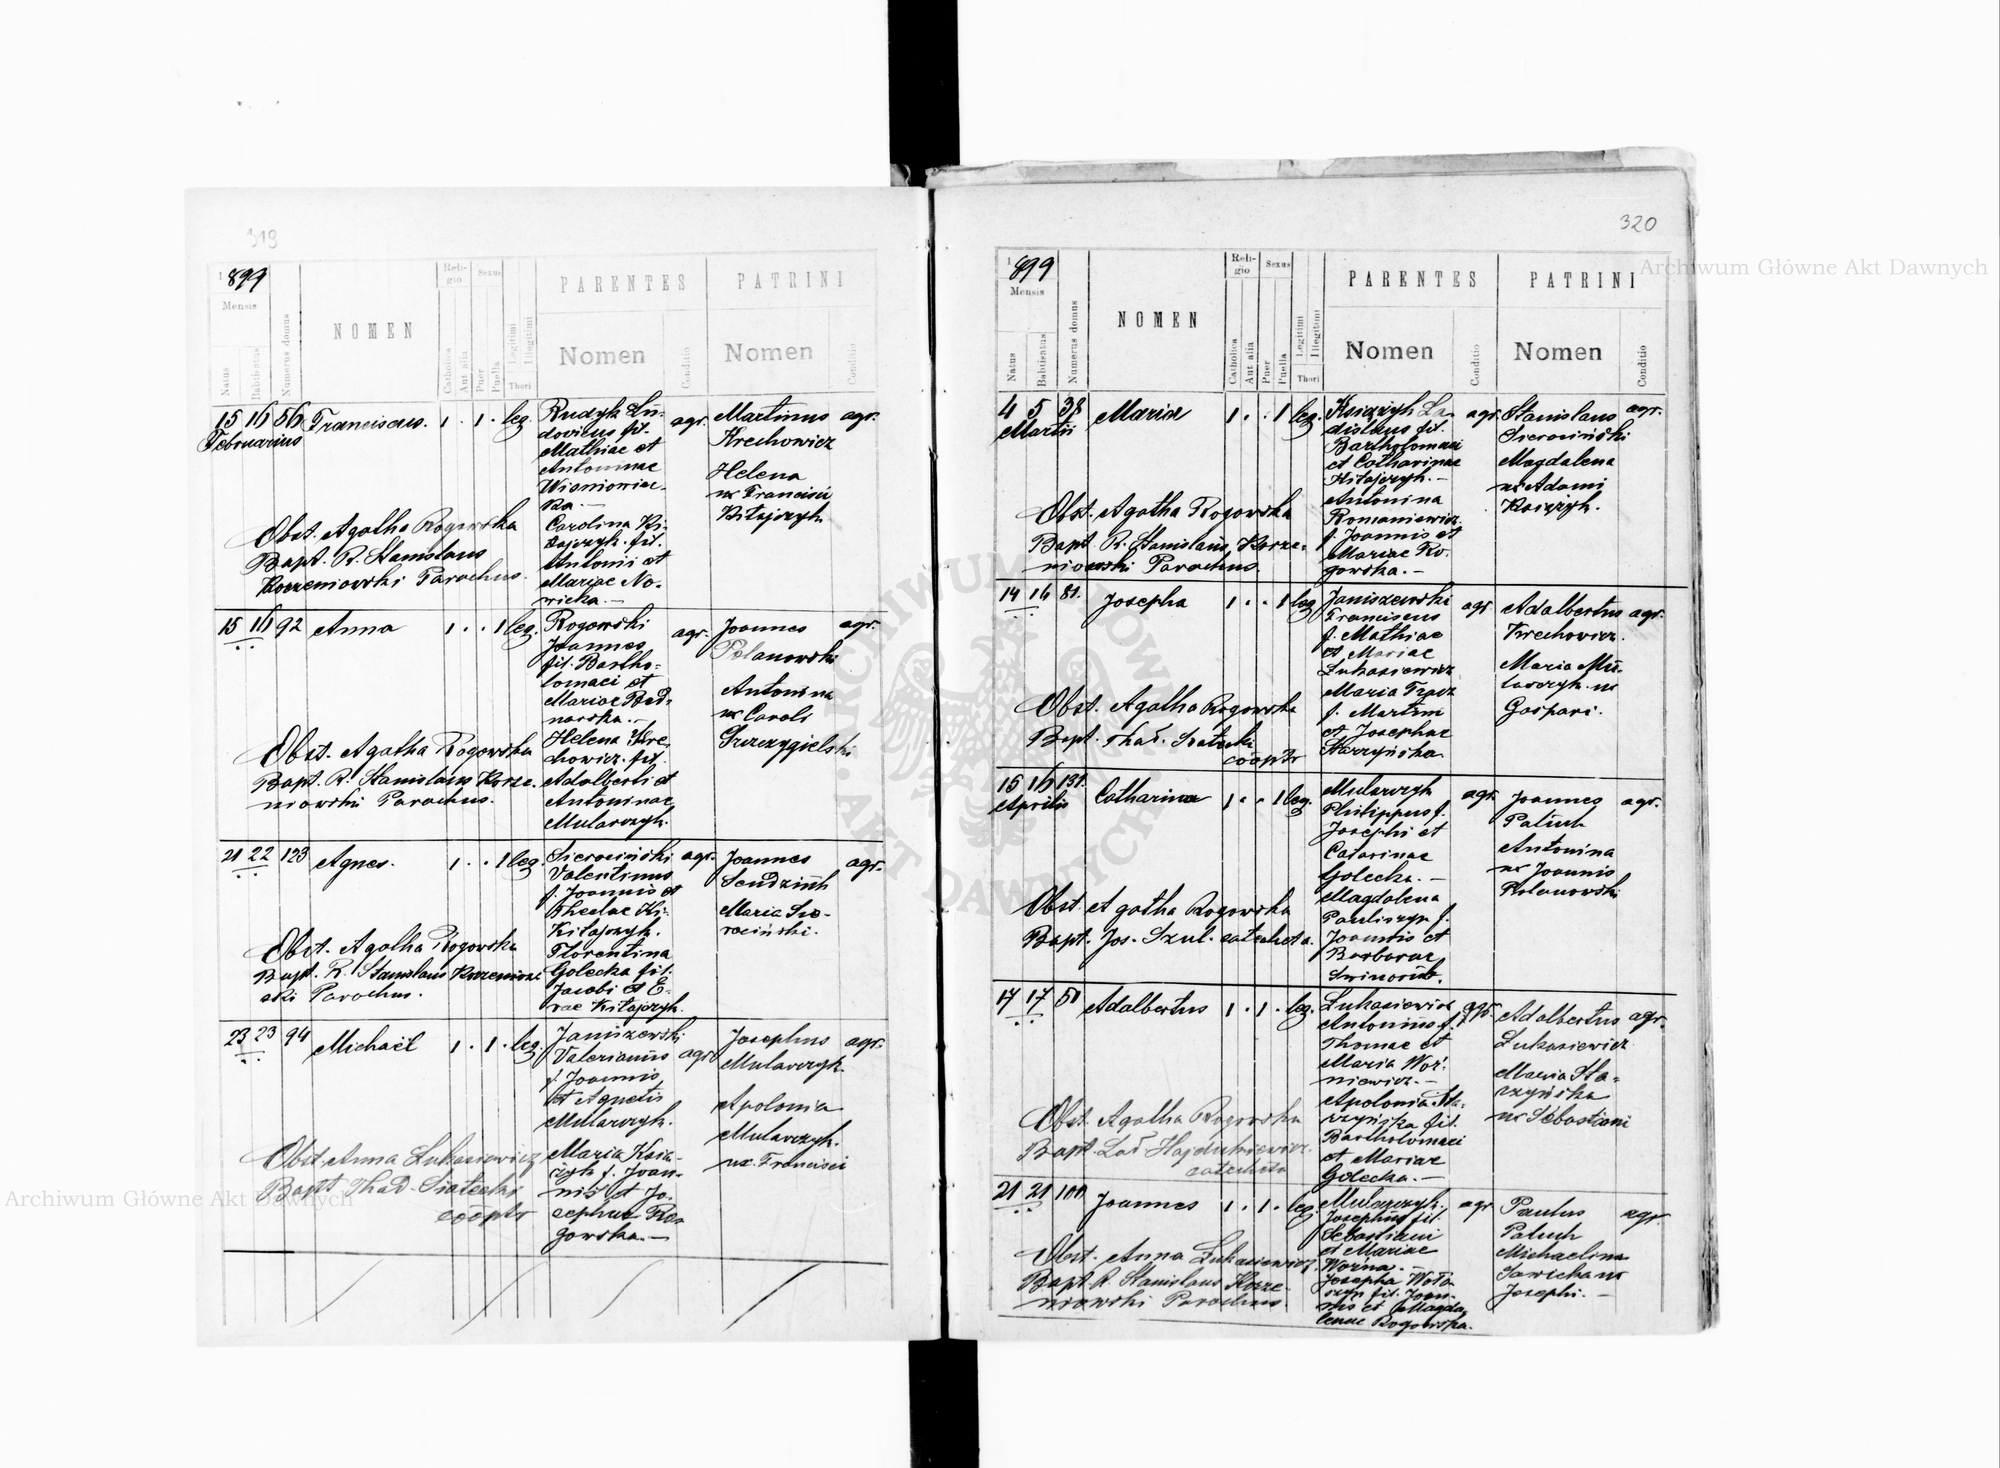 319
1899
Mensis
Natus
Babtisatus
Numerus domus
NOMEN
Reli-
gio
Catholica
Aut alia
Sexus
Puer
Puella
Legitimi
Illegitimi
Thori
PARENTES
Nomen
Conditio
PATRINI
Nomen
Conditio
15 16 56 Franciscus. 1 . 1 . leg.
Februarius
Rudyk Lu-
dovicus fil.
Mathiae et
Antoninae
Wisniowiec-
ka. —
Carolina Ki-
tajczyk. fil.
Antonii et
Mariae No-
wicka. —
agr.
Martinus agr.
Krechowicz
Helena
ux Francisci
Kitajczyk
Obst. Agatha Rogowska
Bapt. R. Stanislaus
Korzeniowski Parochus.
15 16 92 Anna 1 . . 1 leg.
Rogowski
Joannes
fil. Bartho-
lomaei et
Mariae Bed-
narska. —
Helena Kre-
chowicz. fil.
Adalberti et
Antoninae
Mularczyk.
agr.
Joannes agr.
Polanowski
Antonina
ux Caroli
Grzezygielski
Obst. Agatha Rogowska
Bapt. R. Stanislaus Korze-
niowski Parochus.
21 22 123 Agnes. 1 . . 1 leg.
Sierociński
Valentinus
f. Joannis et
Theclae Ki-
Kitajczyk.
Florentina
Golecka fil.
Jacobi et E-
vae Kitajczyk.
agr.
Joannes agr.
Sendziuk
Maria Sie-
rociński.
Obst. Agatha Rogowska
Bapt. R. Stanislaus Korzeniow-
ski Parochus.
23 23 94 Michaël 1 . 1 . leg.
Janiszewski
Valerianus
f. Joannis
et Agnetis
Mularczyk.
Maria Ksią-
żyk f. Joan-
nis et Jo-
sephae Ro-
gowska. —
agr.
Josephus agr.
Mularczyk.
Apolonia
Mularczyk.
ux. Francisci
Obst. Anna Lukasiewicz
Bapt Thad. Siatecki
cooptr
320
1899
Mensis
Natus
Babtisatus
Numerus domus
NOMEN
Reli-
gio
Catholica
Aut alia
Sexus
Puer
Puella
Legitimi
Illegitimi
Thori
PARENTES
Nomen
Conditio
PATRINI
Nomen
Conditio
4 5 38 Maria 1 . . 1 leg.
Martii
Książyk La-
dislaus fil.
Bartholomaei
et Catharinae
Kitajczyk. —
Antonina
Romaniewicz
f. Joannis et
Mariae Ro-
gowska. —
agr.
Stanislaus agr.
Sierociński
Magdalena
ux Adami
Książyk.
Obst. Agatha Rogowska
Bapt. R. Stanislaus Korze-
niowski Parochus.
14 16 81. Josepha 1 . . 1 leg
Janiszewski
Franciscus
f. Mathiae
et Mariae
Lukasiewicz
Maria Tracz
f. Martini
et Josephae
Starzyńska.
agr.
Adalbertus agr.
Krechowicz.
Maria Mu-
larczyk ux
Gaspari.
Obst. Agatha Rogowska
Bapt. Thad. Siatecki
cooptr
15 16 131. Catharina 1 . . 1 leg.
Aprilis
Mularczyk
Philippus f.
Josephi et
Catarinae
Golecka. —
Magdalena
Pauliszyn f.
Joannis et
Barbarae
agr.
Joannes agr.
Paluch
Antonina
ux Joannis
Polanowski
Obst. Agatha Rogowska
Bapt. Jos. Szul. catecheta.
17 17 51 Adalbertus 1 . 1 . leg.
Lukasiewicz
Antonius f.
Thomae et
Maria Woź-
niewicz. —
Apolonia Sta-
rzyńska fil.
Bartholomaei
et Mariae
Golecka. —
agr.
Adalbertus agr.
Lukasiewicz
Maria Sta-
rzyńska
ux Sebastiani
Obst. Agatha Rogowska
Bapt. Lad Hajdukiewicz
catecheta
21 21 100 Joannes 1 . 1 . leg.
Mularczyk.
Josephus fil.
Sebastiani
et Mariae
Woźna. —
Josepha Woło-
szyn fil. Joan-
nis et Magda-
lenae Rogowska.
agr
Paulus agr.
Paluch
Michaelina
Sawicka ux
Josephi. —
Obst. Anna Lukasiewicz.
Bapt. R. Stanislaus Korze-
niowski Parochus.
Archiwum Główne Akt Dawnych
Archiwum Główne Akt Dawnych
ARCHIWUM GŁÓWNE AKT DAWNYCH